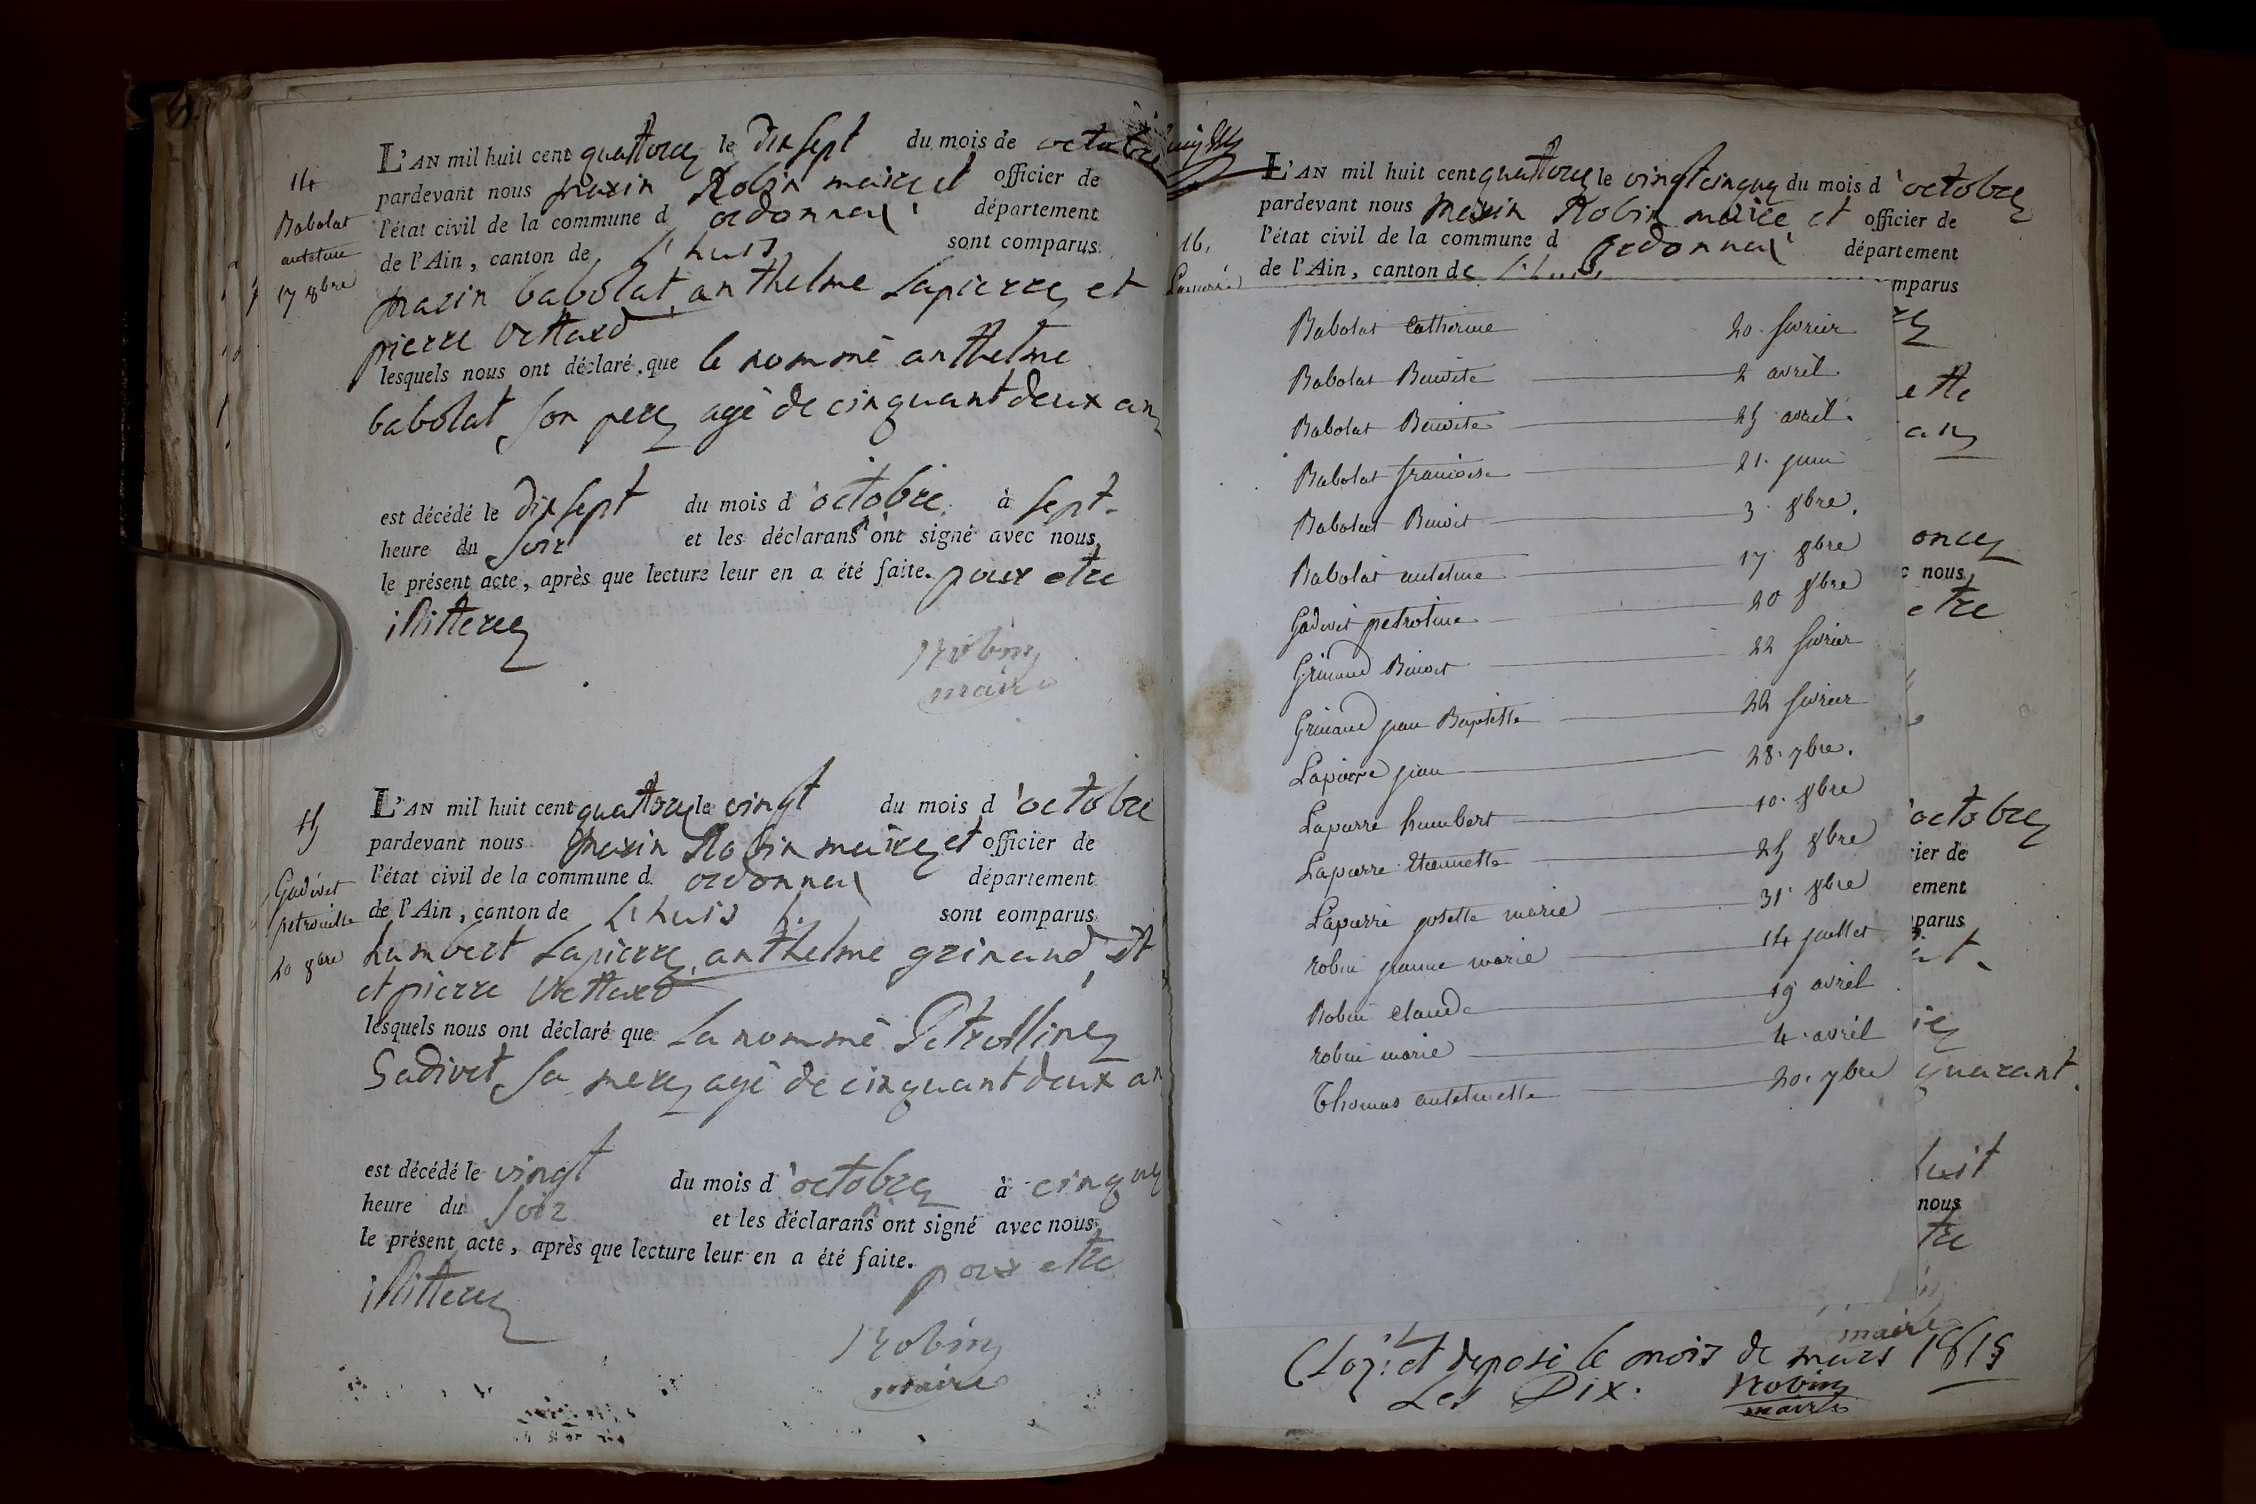 14
Babolat
antelme
17 8bre
L'AN mil huit cent quattorze le dix sept du mois de octobre
pardevant nous marin Robin maire et officier de
l'état civil de la commune d ordonnax département
de l'Ain, canton de L'huis sont comparus
marin babolat anthelme Lapierre et
pierre Vettard
lesquels nous ont déclaré que le nommé anthelme
babolat son pere agé de cinquant deux an
est décédé le dix sept du mois d'octobre à sept
heure du soir et les déclarans n'ont signé avec nous
le présent acte, après que lecture leur en a été faite. pour etre
illitere
Robin
maire
15
Gadivet
petronille
20 8bre
L'AN mil huit cent quattorze le vingt du mois d'octobre
pardevant nous marin Robin maire et officier de
l'état civil de la commune d ordonnax département
de l'Ain, canton de L'huis sont comparus
humbert Lapierre anthelme grinand dit
et pierre Vettard
lesquels nous ont déclaré que La nommé Petrolline
Gadivet sa mere agé de cinquant deux an
est décédé le vingt du mois d'octobre à cinque
heure du soir et les déclarans n'ont signé avec nous
le présent acte, après que lecture leur en a été faite. pour etre
illitere
Robin
maire
L'AN mil huit cent quattorze le vingt cinque du mois d'octobre
pardevant nous marin Robin maire et officier de
16.
l'état civil de la commune d ordonnax département
de l'Ain, canton de L'huis mparus
Babolat Catherine 20 fevrier
Babolat Benoite 2 avril
Babolat Benoite 25 avril.
Babolat francoise 21 juin
Babolat Benoit 3 8bre.
Babolat antelme 17 8bre
Gadivet petroline 20 8bre
Grinand Benoit 22 fevrier
Grinand jean Baptiste 22 fevrier
Lapierre jean 28. 7bre.
Lapierre humbert 10. 8bre
Lapierre etiennette 25 8bre
Lapierre josette marie 31 8bre
robin jeanne marie 14 juillet
Robin claude 19 avril
robin marie 4 avril
Thomas antelmette 20. 7bre
ette
an
once
nous
etre
octobre
cier de
ement
parus
quarant
huit
nous
tre
maire
Clos et deposé le mois de mars 1815
Les Dix. Robin
maire